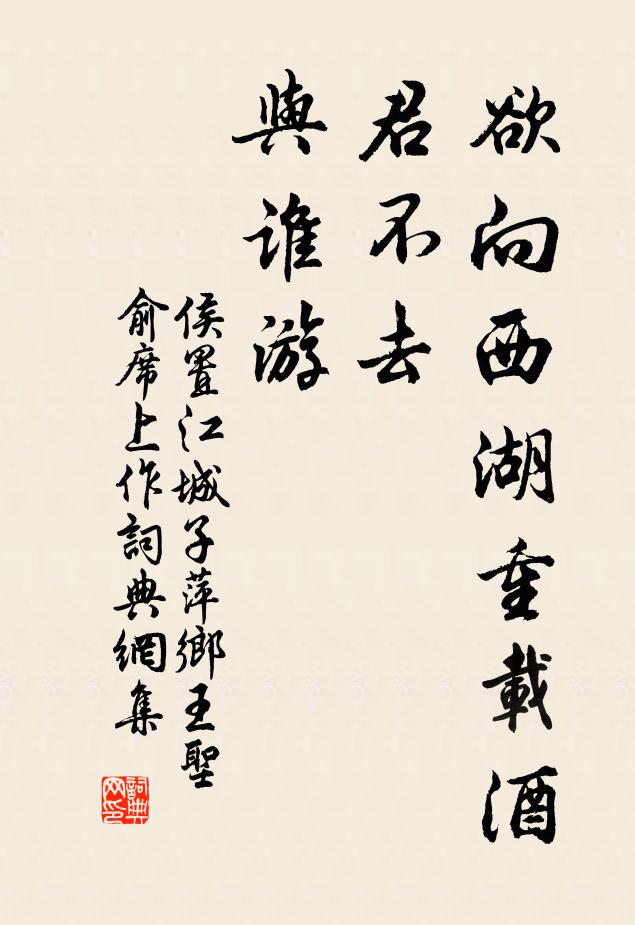 欲向西湖重載酒
君不去
與誰游
侯置江城子萍鄉王聖
俞席上作詞典網集
詞典
网印